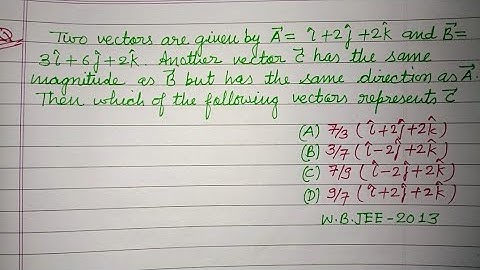 Q
Two vectors are given by A⃗ = î+2ĵ+2k̂ and B⃗=
3î+6ĵ+2k̂. Another vector C⃗ has the same
magnitude as B⃗ but has the same direction as A⃗.
Then which of the following vectors represents C⃗
(A) 7/3 (î+2ĵ+2k̂)
(B) 3/7 (î-2ĵ+2k̂)
(C) 7/9 (î-2ĵ+2k̂)
(D) 9/7 (î+2ĵ+2k̂)
W.B.JEE-2013